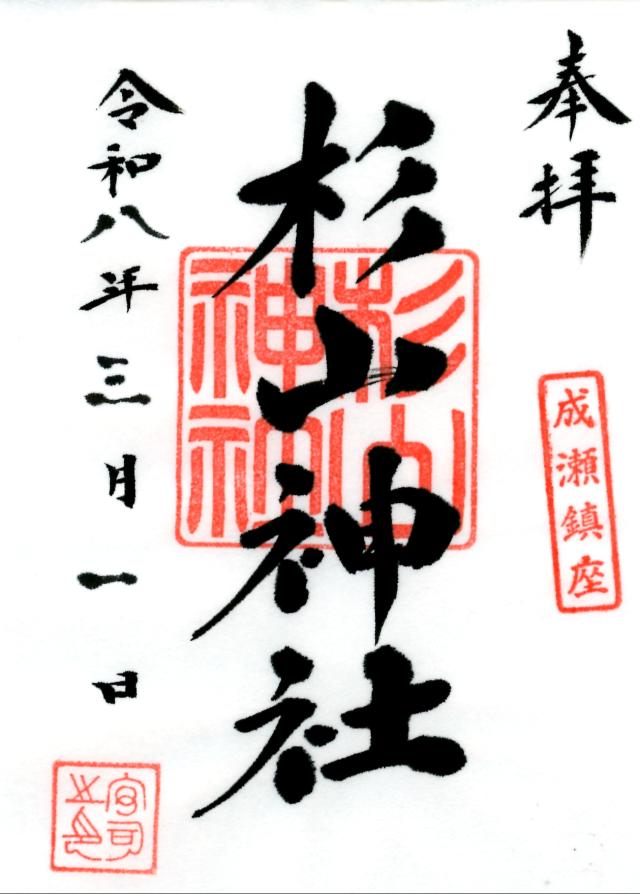 奉拝
成瀬鎮座
杉山神社
杉山神社
令和八年三月一日
宮司之印